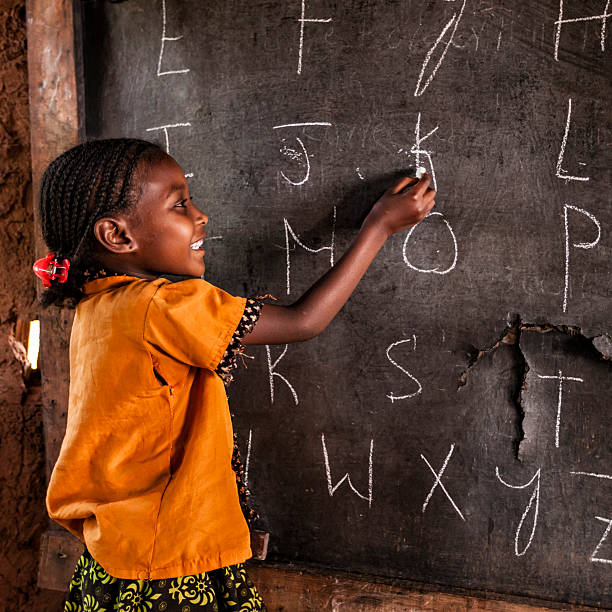 E F g H
I J K L
M O P
R S T
W X y Z